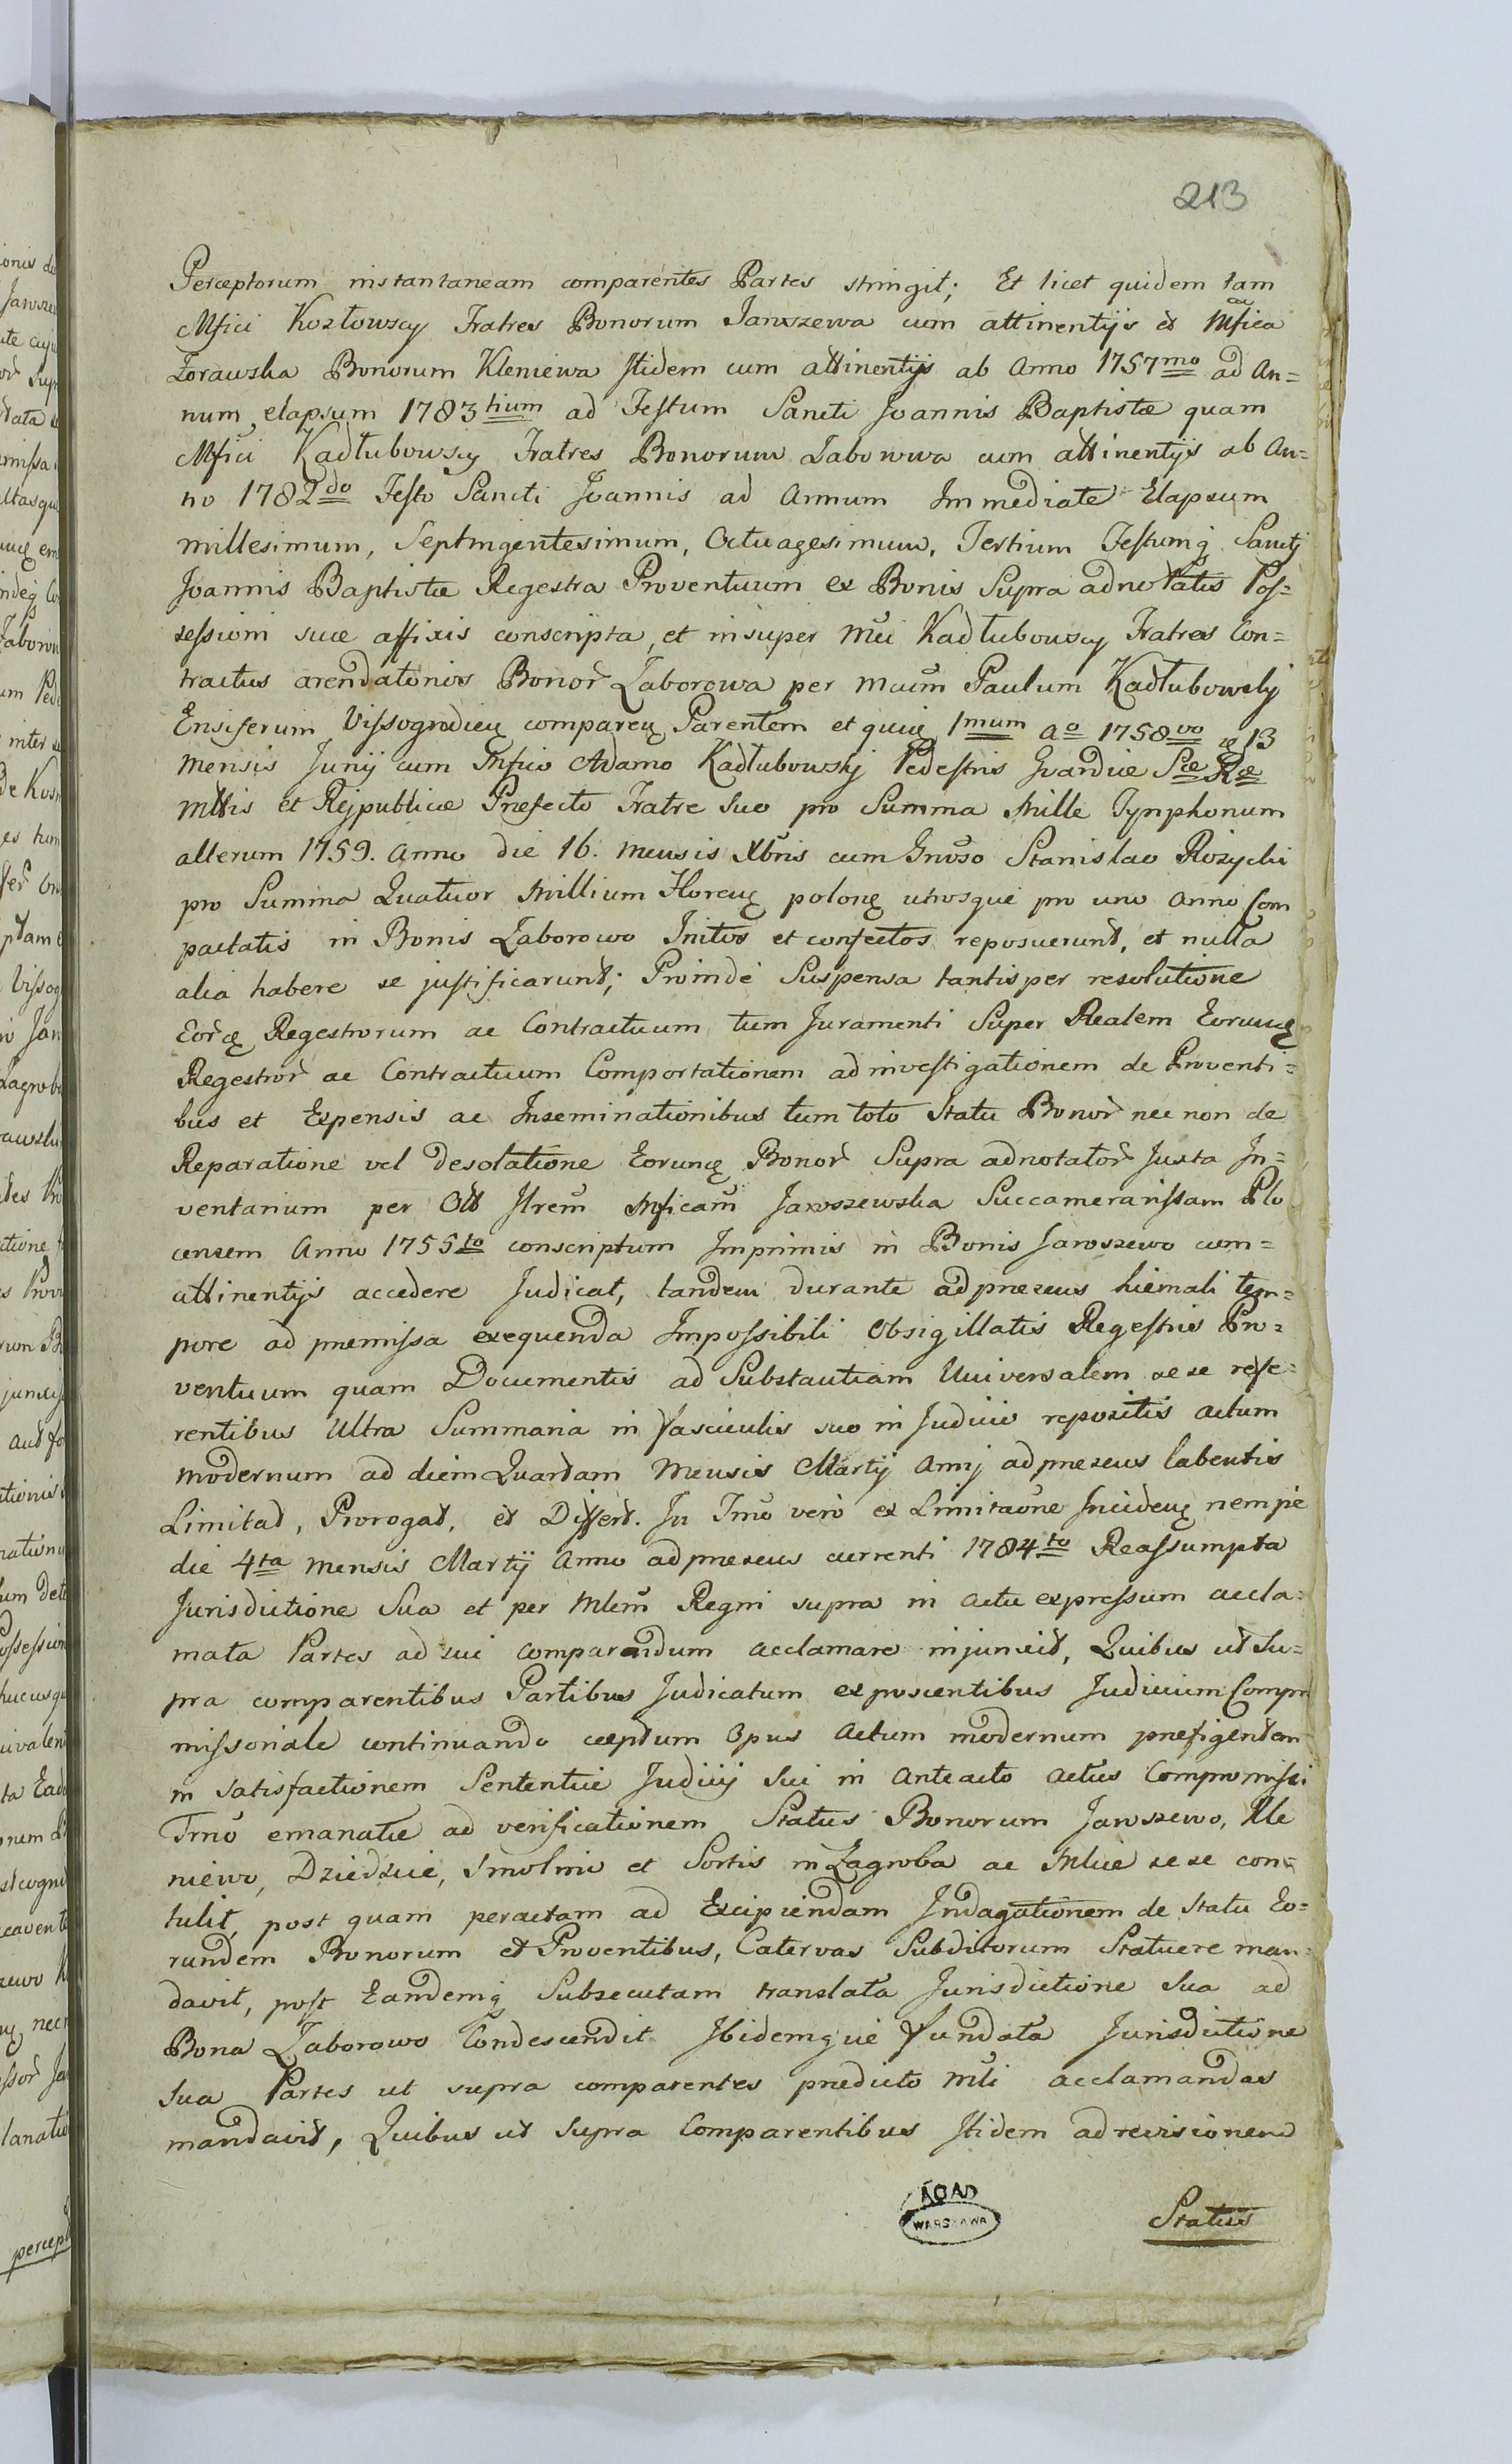 213
Perceptorum instantaneam comparentes Partes stringit; Et licet quidem tam
Mfici Kozłowscy Fratres Bonorum Jaroszewa cum attinentijs et Mfica
Zorawska Bonorum Kleniewa Itidem cum attinentijs ab Anno 1757mo ad An=
num elapsum 1783tium ad Festum Sancti Joannis Baptistæ quam
Mfici Kadłubowscy Fratres Bonorum Zaborowa cum attinentijs ab An=
no 1782do Festo Sancti Joannis ad Annum Immediate Elapsum
millesimum, Septingentesimum, Octuagesimum, Tertium Festumq Sancti
Joannis Baptistæ Regestra Proventuum ex Bonis Supra adnotatis Pos=
sessioni suæ affixis conscripta, et insuper Mci Kadłubowscy Fratres Con=
tractus arendatorios Bonor Zaborowa per Mcum Paulum Kadłubowskj
Ensiferum Vissogradien comparen Parentem et quid 1mum ao 1758vo 13
Mensis Junij cum Mfico Adamo Kadłubowskj Pedestris Gvardiæ Sæ Ræ
Mttis et Rejpublicæ Præfecto Fratre Suo pro Summa Mille Tynphonum
alterum 1759. Anno die 16. Mensis Xbris cum Gnoso Stanislao Rozycki
pro Summa Quatuor Millium Floren polon utrosque pro uno Anno Com
pactatis in Bonis Zaborowo Initos et confectos reposuerunt, et nulla
alia habere se justificarunt; Proinde Suspensa tantisper resolutione
Regestrorum ac Contractuum tum Juramenti Super Realem
Regestror ac Contractuum Comportationem ad investigationem de Proventi=
bus et Expensis ac Inseminationibus tum toto Statu Bonor nec non de
Reparatione vel Desolatione Bonor Supra adnotator Juxta In=
ventarium per Mficam Jaroszewska Succamerarissam Plo
censem Anno 1755to conscriptum Imprimis in Bonis Jaroszewo cum=
attinentijs accedere Judicat, tandem durante adpræsens hiemali tem=
pore ad præmissa exequenda Impossibili Obsigillatis Regestris Pro=
ventuum quam Documentis ad Substantiam Universalem sese refe=
rentibus Ultra Summaria in fasciculis suo in Judicio repositis actum
modernum ad diem Quartam Mensis Martij Anni adpræsens labentis
Limitat, Prorogat, et Differt. In Tmo vero ex Limitaone Inciden nempe
die 4ta Mensis Martij Anno adpræsens currenti 1784to Reassumpta
Jurisdictione Sua et per Mlem Regni supra in actu expressum accla=
mata Partes ad sui comparendum acclamare injunxit, Quibus ut Su=
pra comparentibus Partibus Judicatum exposcentibus Judicium Compro
missoriale continuando cæptum Opus Actum modernum præfigentem
in satisfactionem Sententiæ Judicij Sui in Anteacto actus Compromissi
Tmo emanatæ ad verificationem Status Bonorum Jaroszewo, Kle
niewo, Dziedzice, Smolino et Sortis in Zagroba ac Mlice sese con=
tulit, post quam peractam ad Excipiendam Indagationem de Statu Eo=
rundem Bonorum et Proventibus, Catervas Subditorum Statuere man=
davit, post Eandemq Subsecutam translata Jurisdictione Sua ad
Bona Zaborowo Condescendit Ibidemque fundata Jurisdictione
Sua Partes ut supra comparentes prædicto Mli acclamandas
mandavit, Quibus ut Supra Comparentibus Itidem ad revisionem
AGAD
WARSZAWA
Status